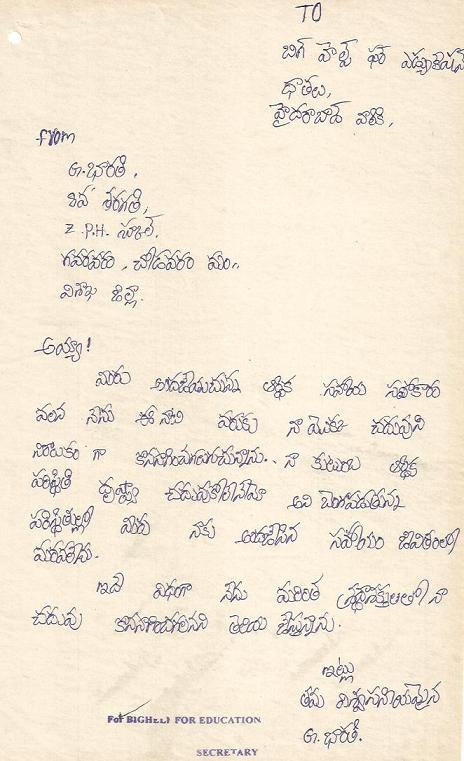 TO
బిగ్ హెల్ప్ ఫర్ ఎడ్యుకేషన్
దాతలు,
హైదరాబాద్ వారికి,
From
G. భారతి,
8వ తరగతి,
Z.P.H. స్కూల్,
గవరవరం, చోడవరం మం.,
విశాఖ జిల్లా.
అయ్యా!
మీరు అందజేయుచున్న ఆర్థిక సహాయ సహకారం
వలన నేను ఈ నాటి వరకు నా యొక్క చదువుని
నిరాటకం గా కొనసాగించుచున్నాను. నా కుటుంబ ఆర్థిక
పరిస్థితి దృష్ట్యా చదువుకోలేనేమో అని బెంగపడుతున్న
పరిస్థితుల్లో మీరు నాకు అందజేసిన సహాయం జీవితంలో
మరువలేను.
ఇదే విధంగా నేను మరింత శ్రద్ధాసక్తులతో నా
చదువు కొనసాగించగలనని తెలియ జేస్తున్నాను.
ఇట్లు
తమ విశ్వసనీయమైన
G. భారతి.
For BIGHELP FOR EDUCATION
SECRETARY